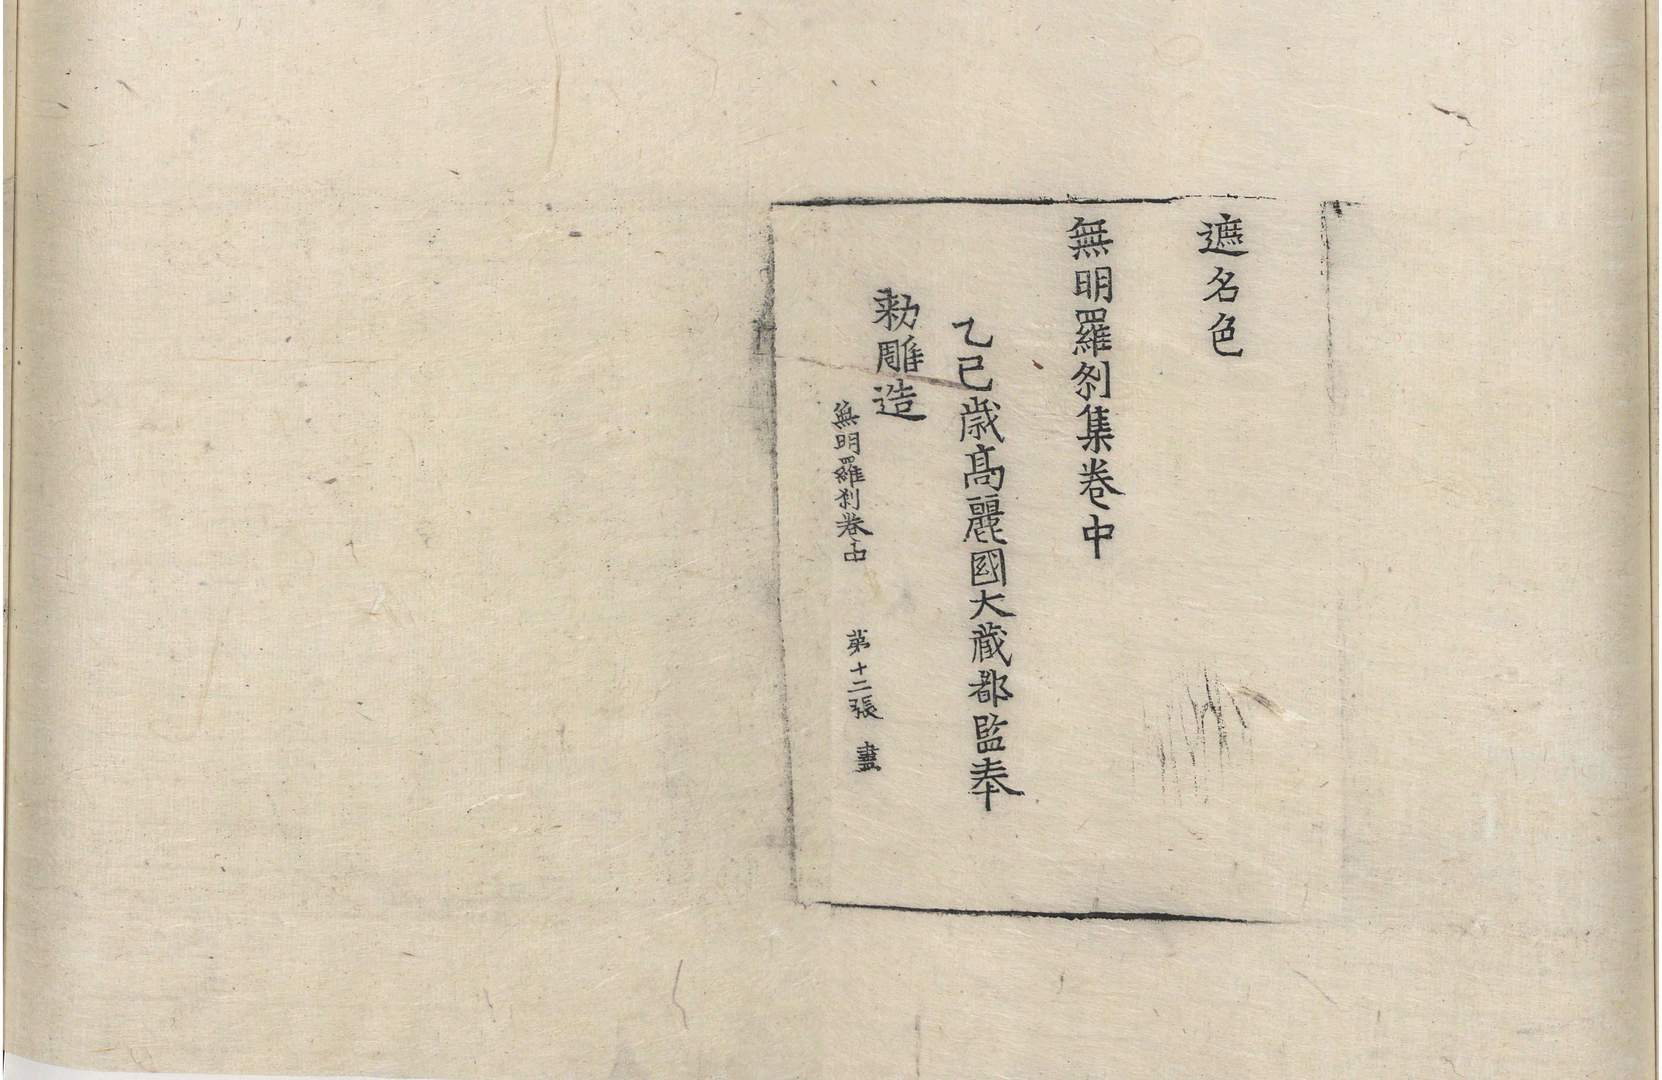 遮名色
無明羅刹集卷中
乙巳歲高麗國大藏都監奉
勅雕造
無明羅刹卷中 第十二張 盡